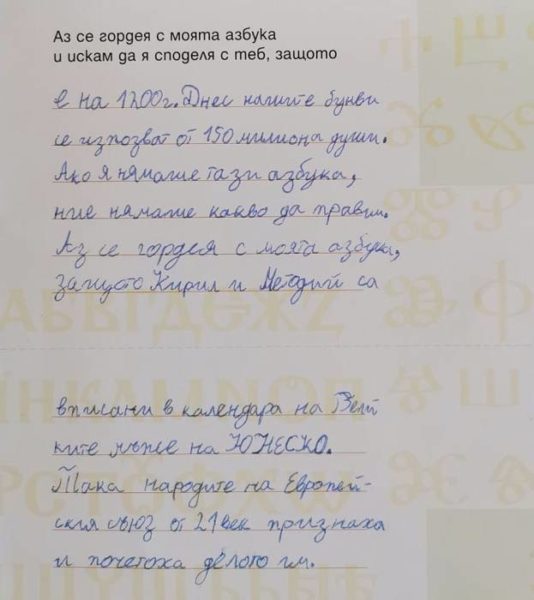 Аз се гордея с моята азбука
и искам да я споделя с теб, защото
е на 1200г. Днес нашите букви
се изпозват от 150 милиона души.
Ако я нямаше тази азбука,
ние нямаше какво да правим.
Аз се гордея с моята азбука,
защото Кирил и Методий са
вписани в календара на Вели
ките мъже на ЮНЕСКО.
Така народите на Европей-
ския съюз от 21 век признаха
и почетоха делото им.